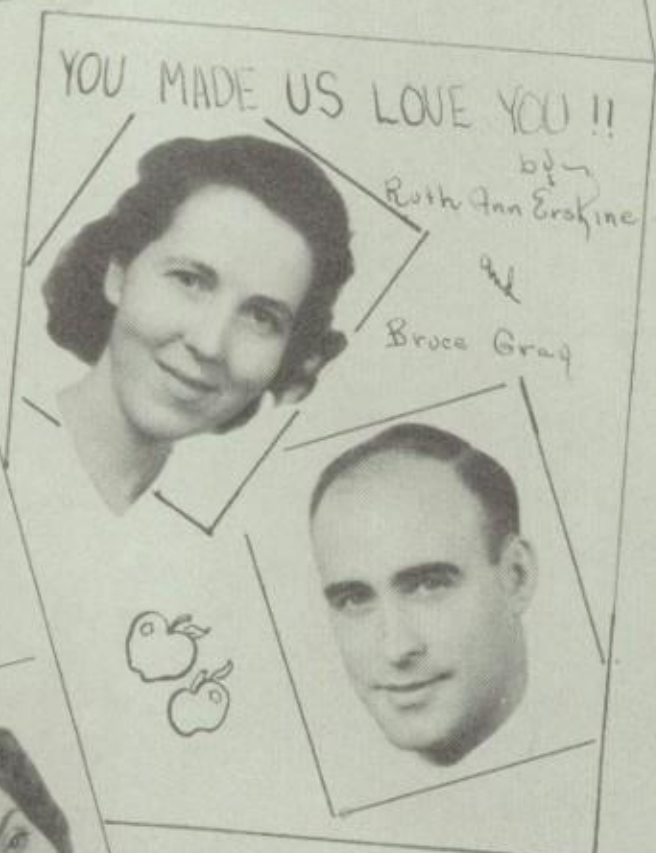 YOU MADE US LOVE YOU !!
by
Ruth Ann Erskine
and
Bruce Gray